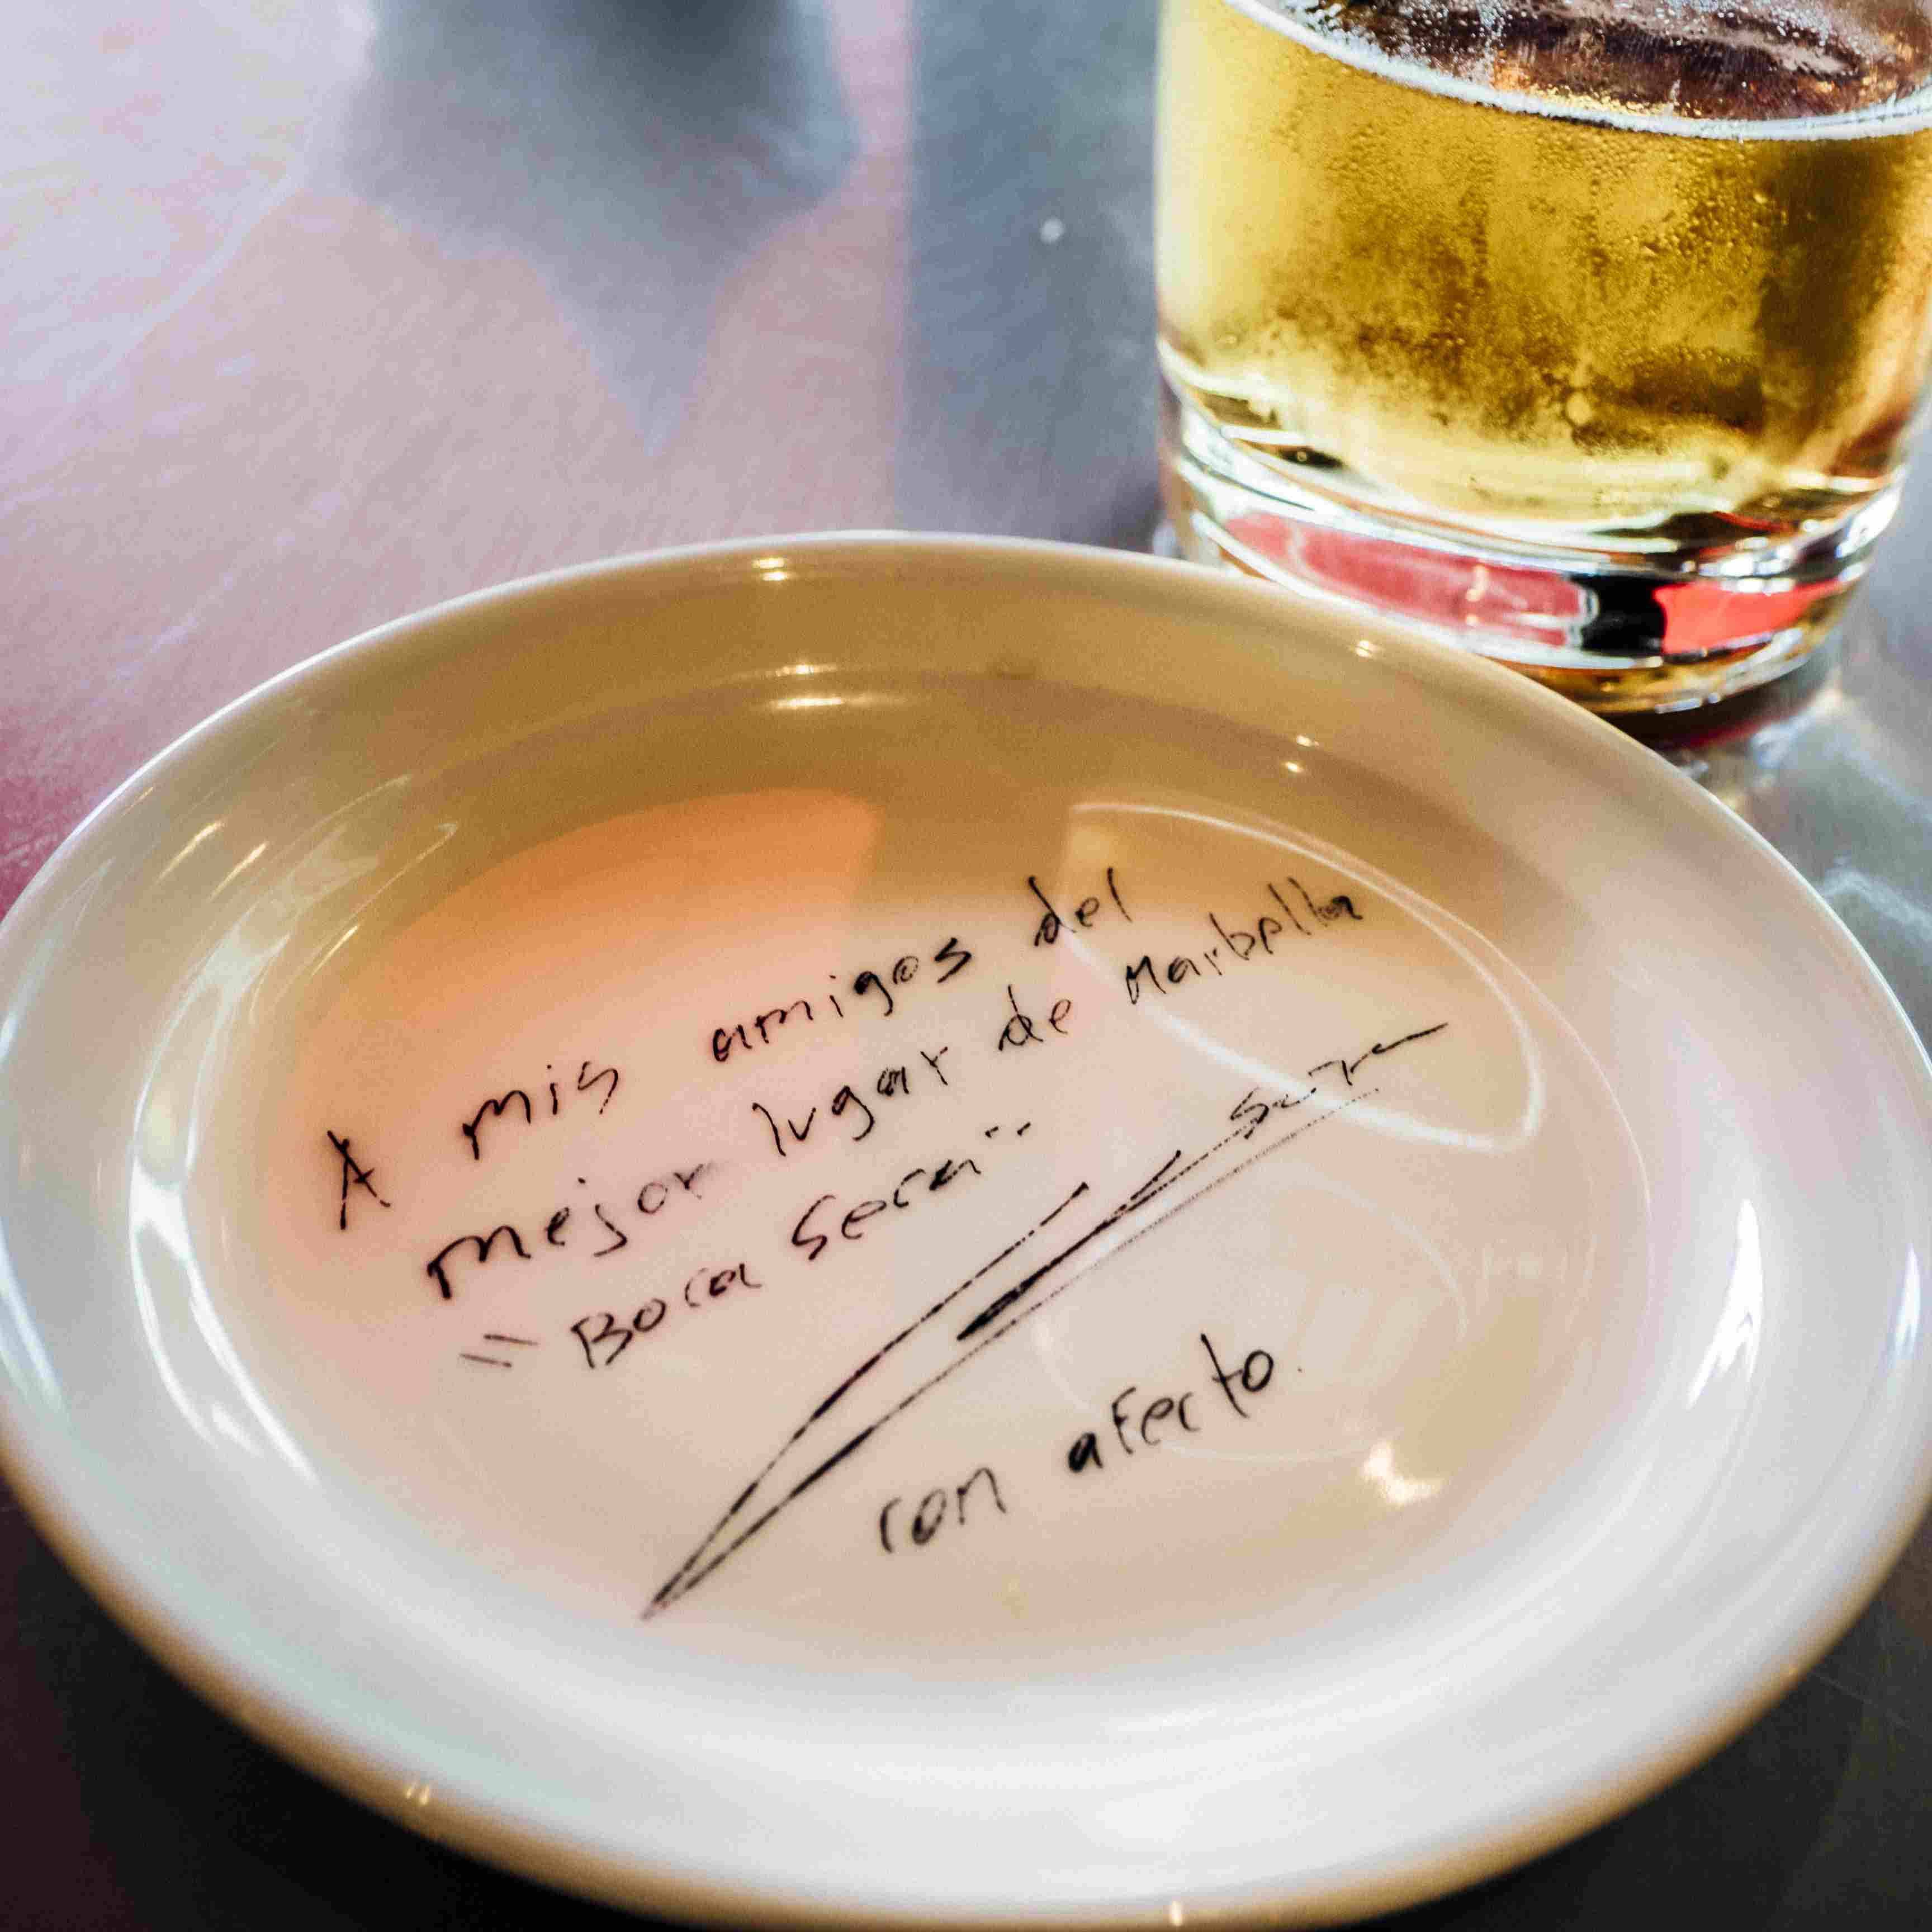 A mis amigos del
mejor lugar de Marbella
"Boca Seca"
con afecto.